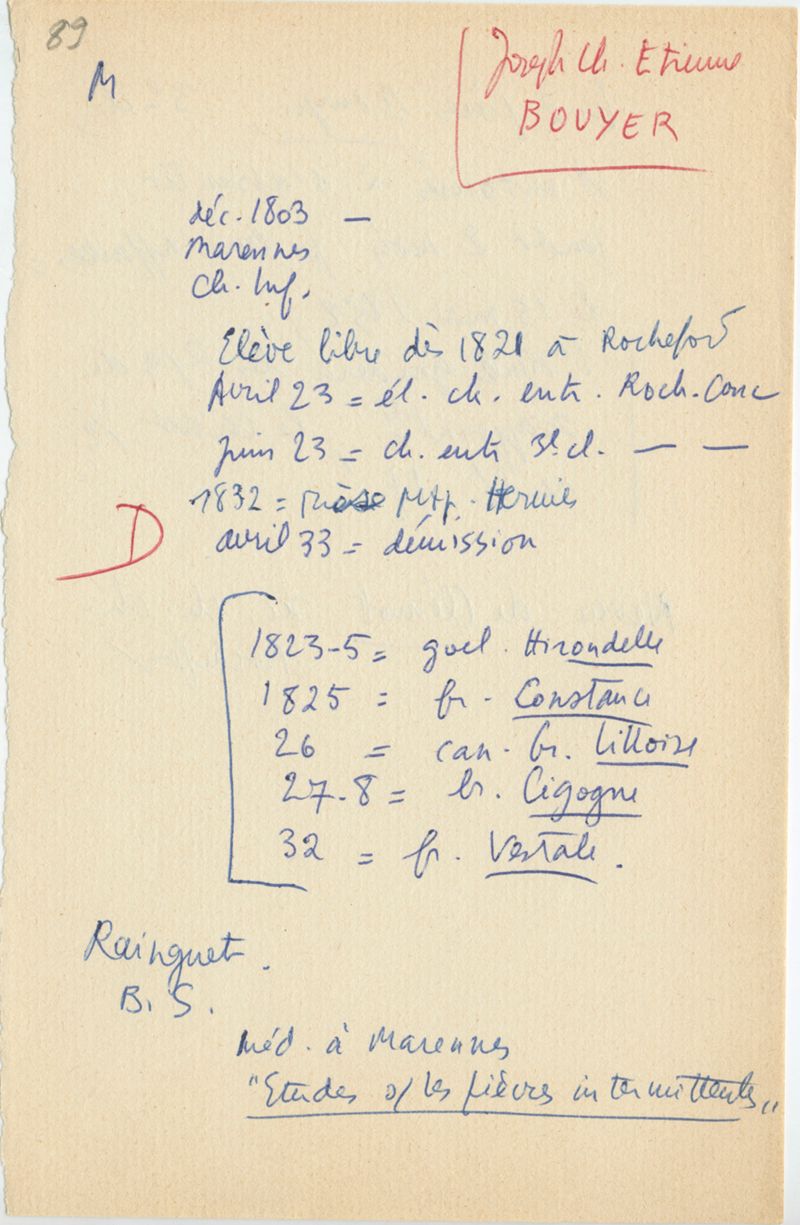 89
M
Joseph Ch. Etienne
BOUYER
déc. 1803 —
Marennes
Ch. Inf.
Elève libre dès 1821 à Rochefort
Avril 23 = él. ch. entr. Roch. Conc
juin 23 = ch. entr 3e cl. — —
1832 = Thèse Mtp. Hernies
D
avril 33 = démission
1823-5 = goel. Hirondelle
1825 = fr. Constance
26 = can. br. Lilloise
27-8 = br. Cigogne
32 = fr. Vestale.
Rainguet.
B. S.
méd. à Marennes
"Etudes s/ les fièvres intermittentes"